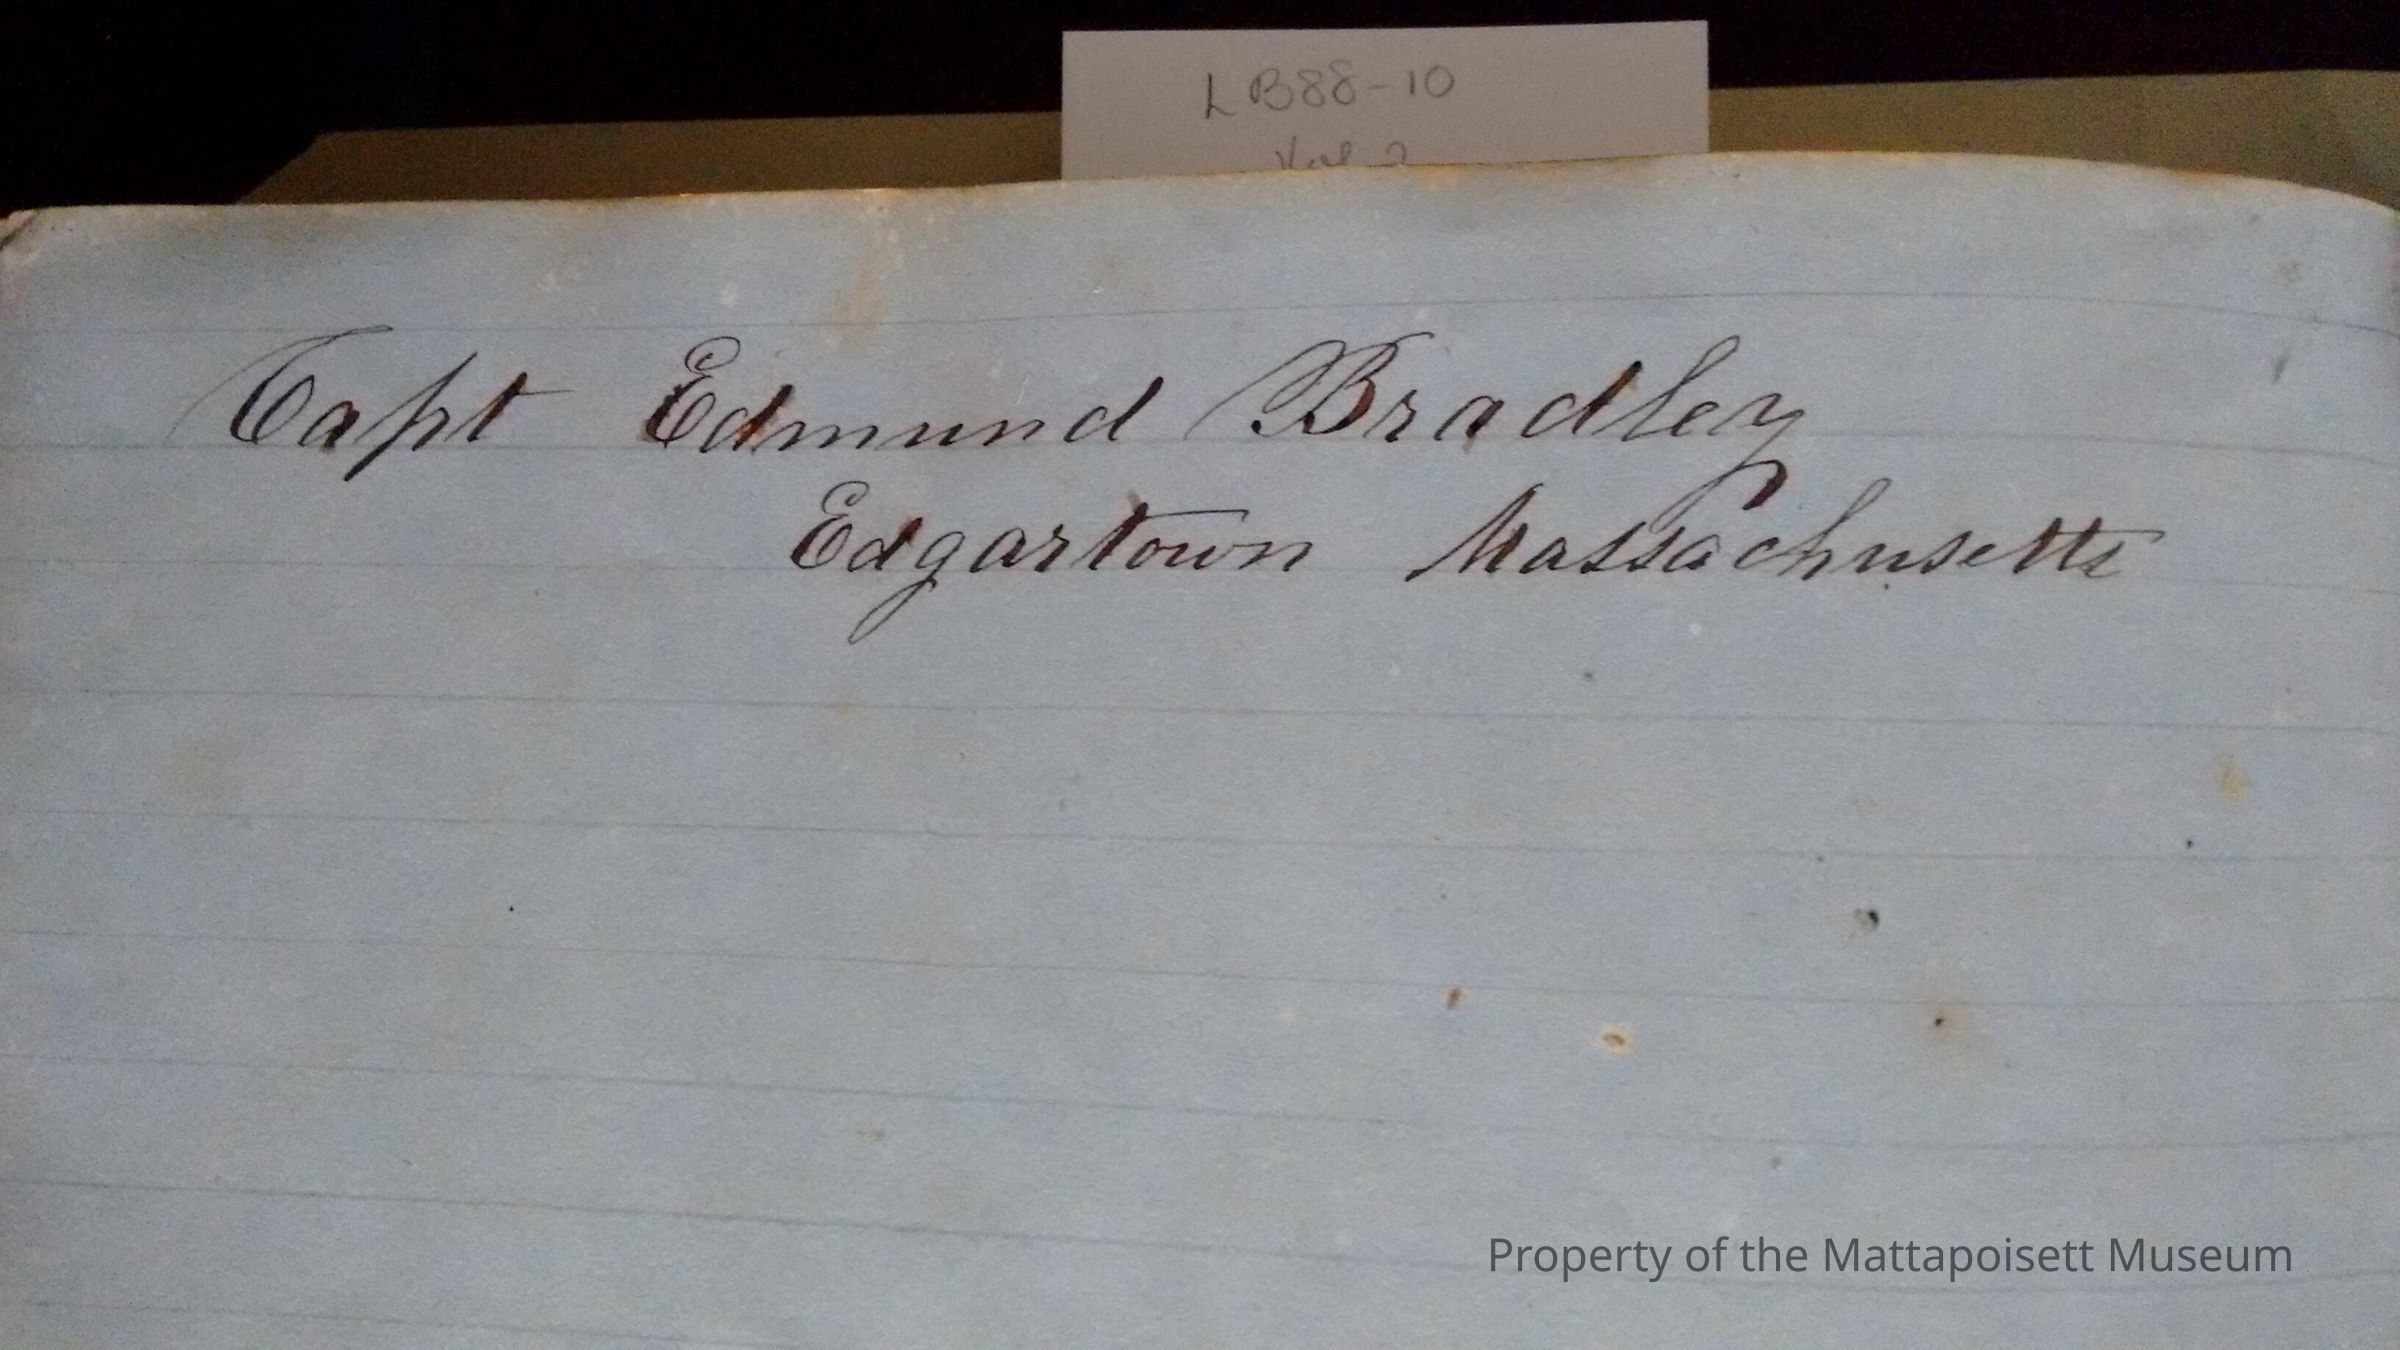 LB88-10
Vol 2
Capt Edmund Bradley
Edgartown Massachusetts
Property of the Mattapoisett Museum